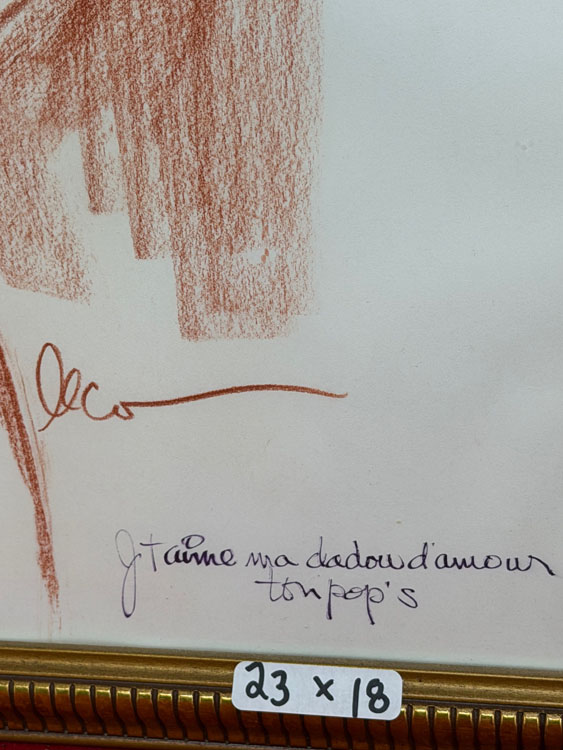 J t'aime ma dadou d'amour
ton pop's
23 x 18